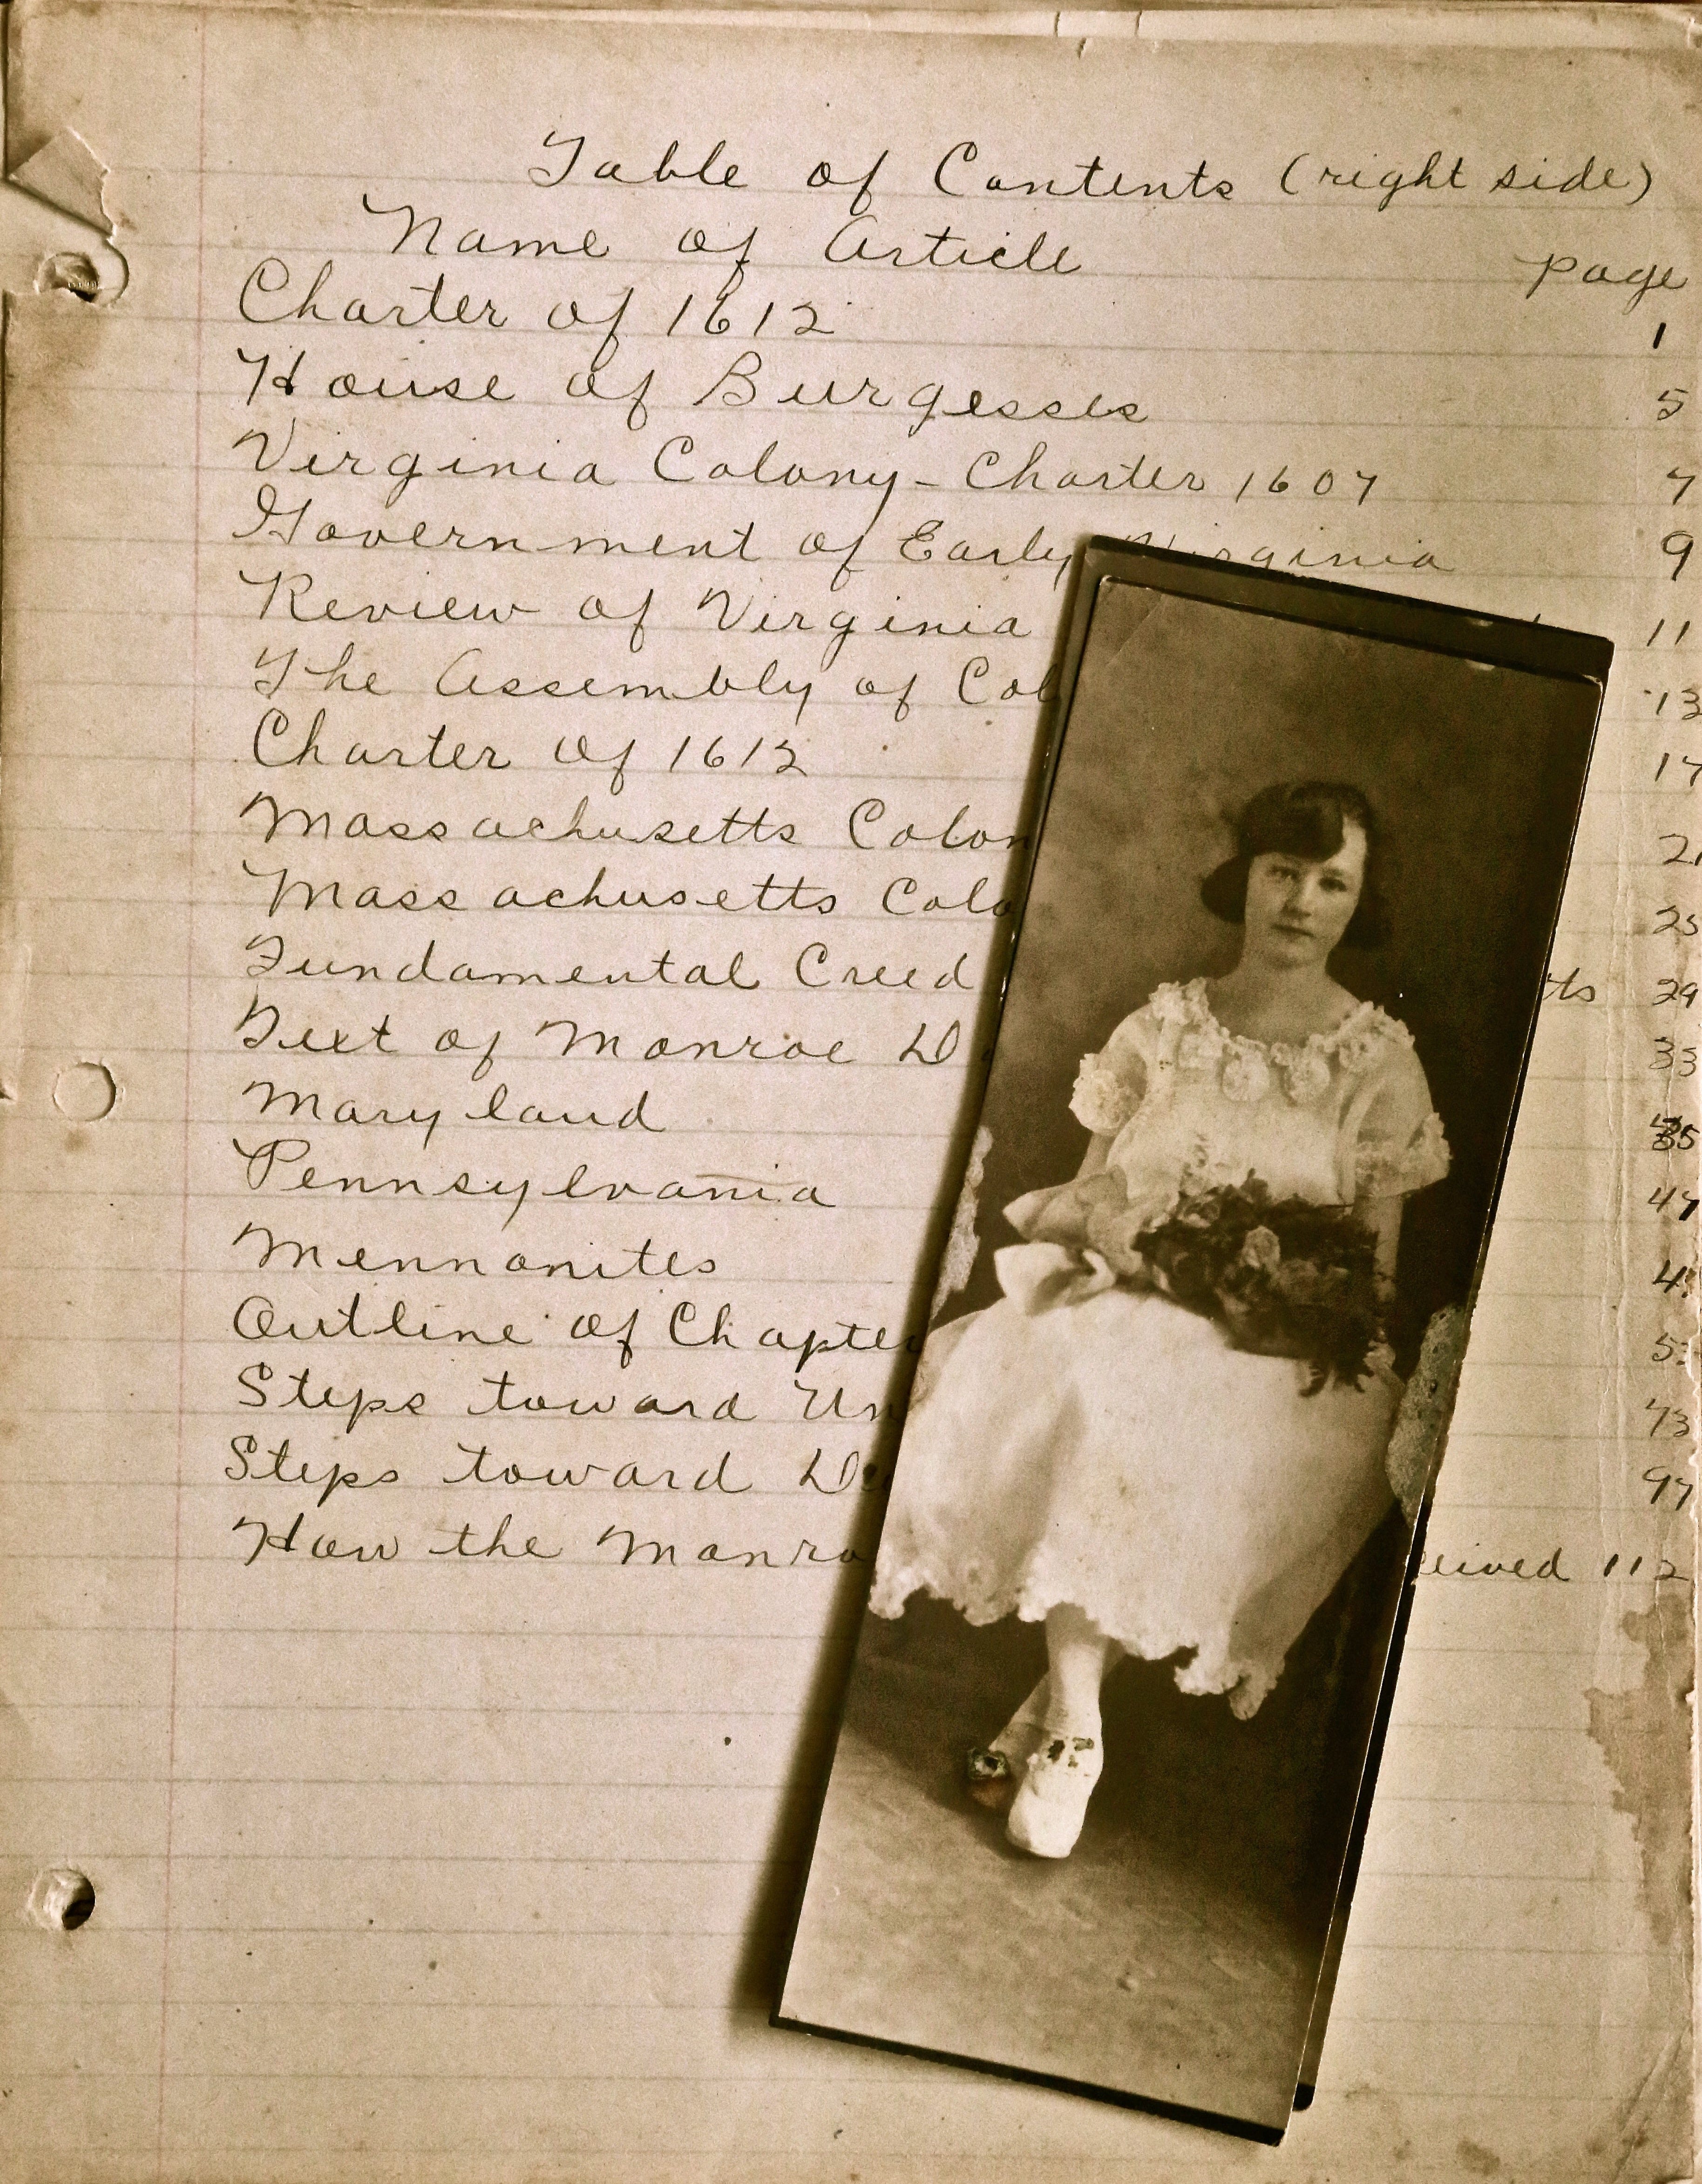 Table of Contents (right side)
Name of Article page
Charter of 1612 1
House of Burgesses 5
Virginia Colony - Charter 1607 7
Government of Early Virginia 9
Review of Virginia 11
The Assembly of 13
Charter of 1612 17
Massachusetts 21
Massachusetts 25
Fundamental Creed 29
Text of Monroe 33
Maryland 35
Pennsylvania 47
Mennonites
Outline of
Steps toward 73
Steps toward 97
How the 112